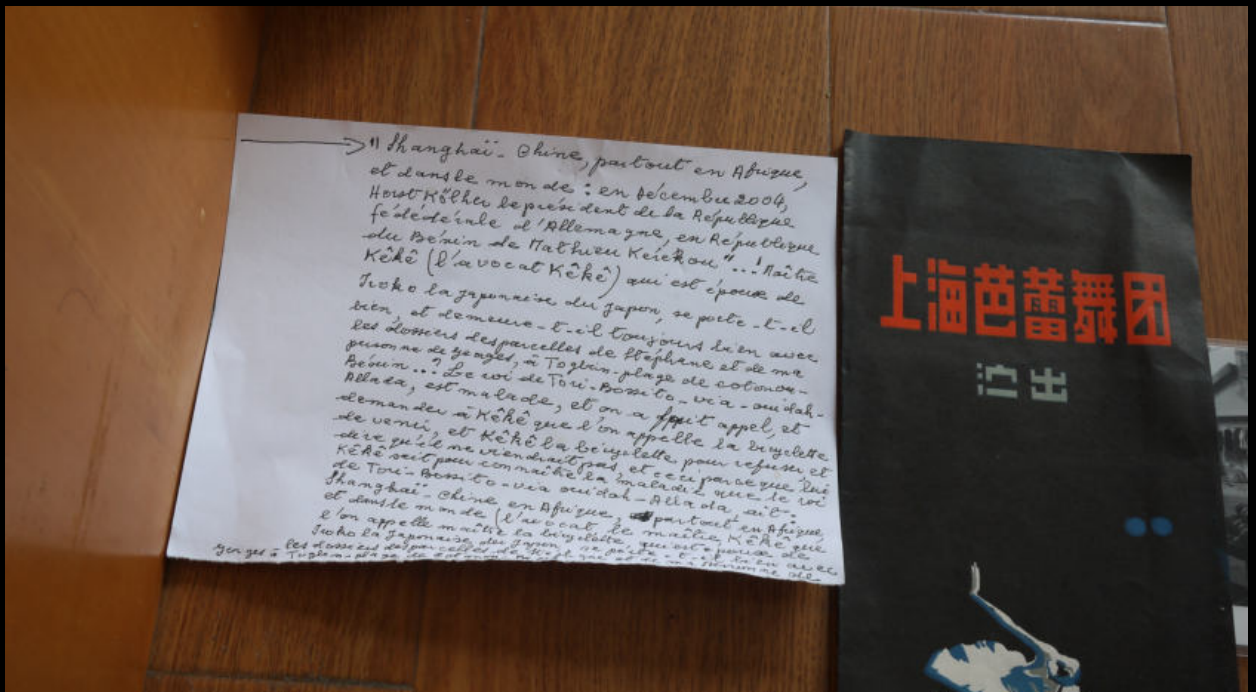 "Shanghaï - Chine, partout en Afrique,
et dans le monde : en décembre 2004,
Horst Kölher le président de la République
fédédérale d'Allemagne, en République
du Bénin de Mathieu Kérékou"...! Maître
Kêkê (l'avocat Kêkê) qui est époux de
Iroko la japonaise du Japon, se porte-t-il
bien, et demeure-t-il toujours bien avec
les dossiers des parcelles de Stéphane et de ma
personne de yonges, à Togbin-plage de cotonou-
Bénin...? Le roi de Tori-Bossito-via-ouidah-
Allada, est malade, et on a fait appel, et
demander à Kêkê que l'on appelle la bicyclette
de venir, et Kêkê la bicyclette pour refuser et
dire qu'il ne viendrait pas, et ceci parce que lui
Kêkê sait pour connaître la maladie que le roi
de Tori-Bossito-via ouidah-Allada, ait.
Shanghaï-Chine en Afrique, partout en Afrique,
et dans le monde (l'avocat, le maître Kêkê que
l'on appelle maître la bicyclette qui est époux de
Iroko la Japonaise du Japon, se porte-t-il bien avec
les dossiers des parcelles de et de ma personne de
yonges à Togbin-plage de cotonou
上海芭蕾舞团
演出